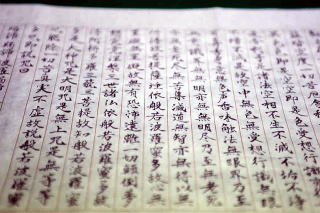 切苦厄舍利
空空即是色受想行
諸法空相不生不滅不垢不淨
中無色無受想行識無眼
色聲香味觸法無眼界乃至
無明亦無無明盡乃至無老死
無苦集滅道無智亦無得以無
提薩埵依般若波羅蜜多故心無
無有恐怖遠離一切顛倒夢
三世諸佛依般若波羅蜜多
羅三藐三菩提故知般若波羅蜜
是大明咒是無上咒是無等等
能除一切苦真實不虛故說般若波羅蜜
即說咒曰